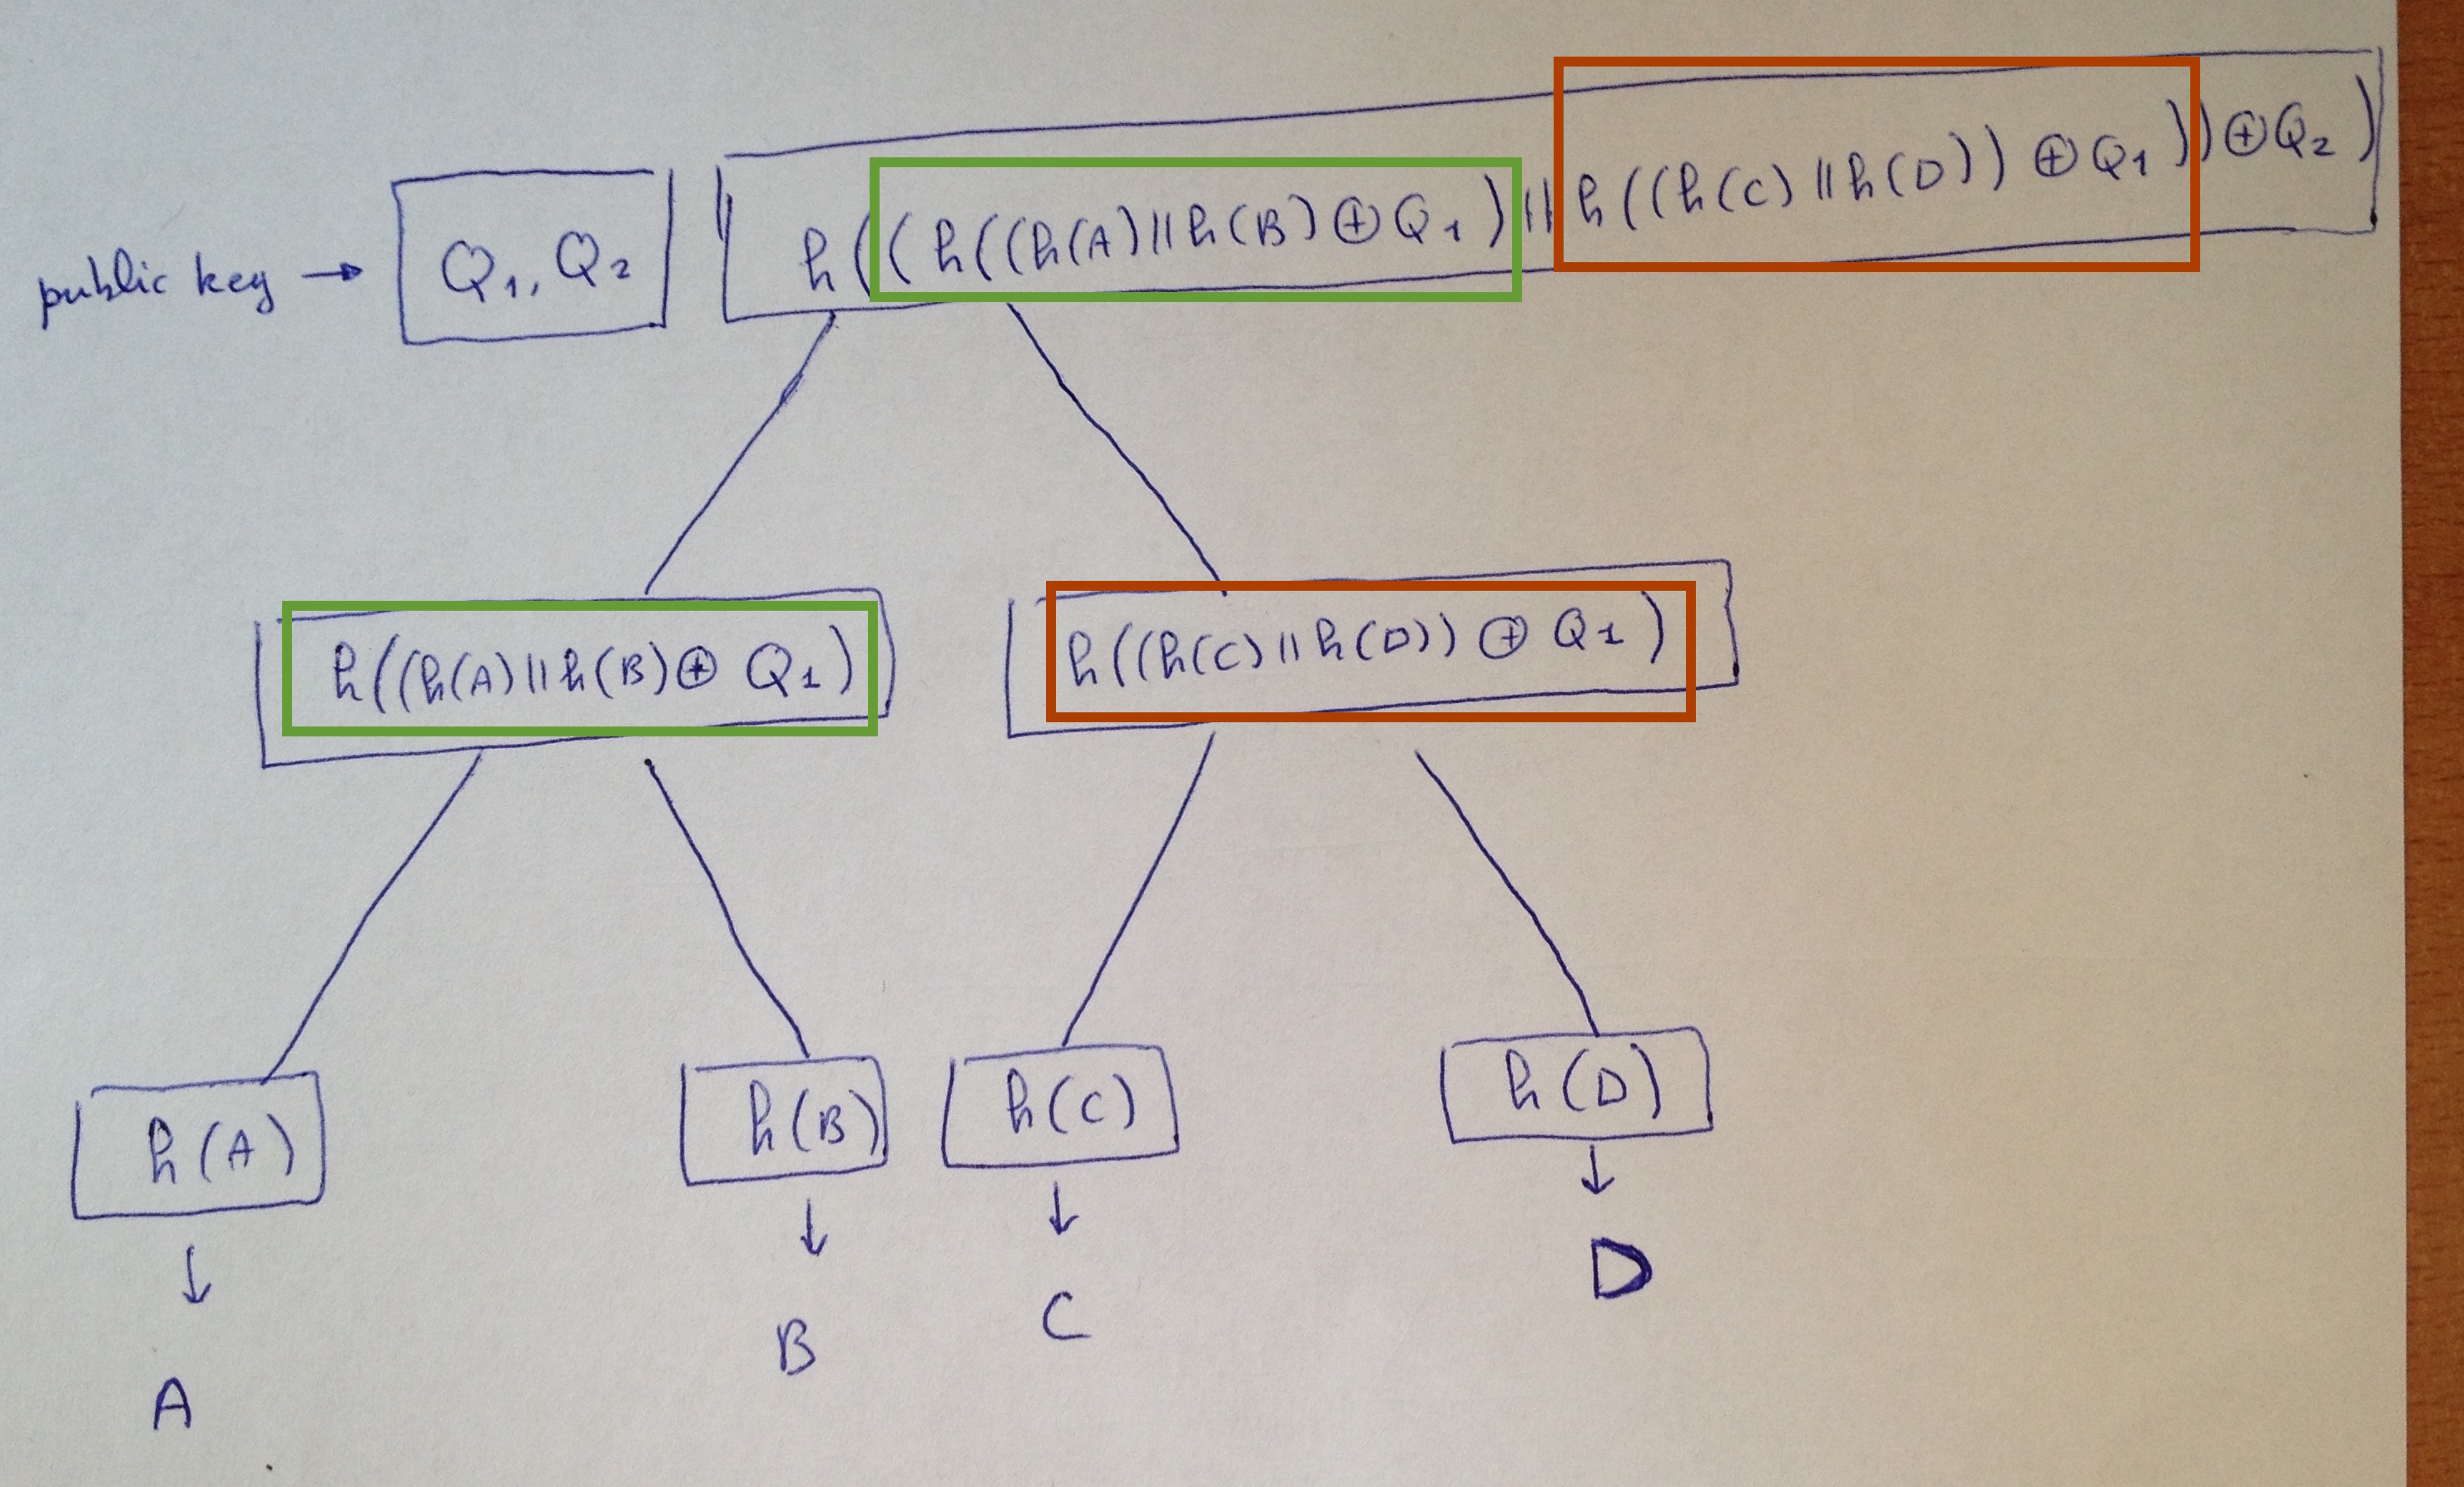 public key → Q₁, Q₂ h((h((h(A)||h(B)⊕Q₁)||h((h(C)||h(D))⊕Q₁))⊕Q₂)
h((h(A)||h(B)⊕Q₁) h((h(C)||h(D))⊕Q₁)
h(A) h(B) h(C) h(D)
A B C D